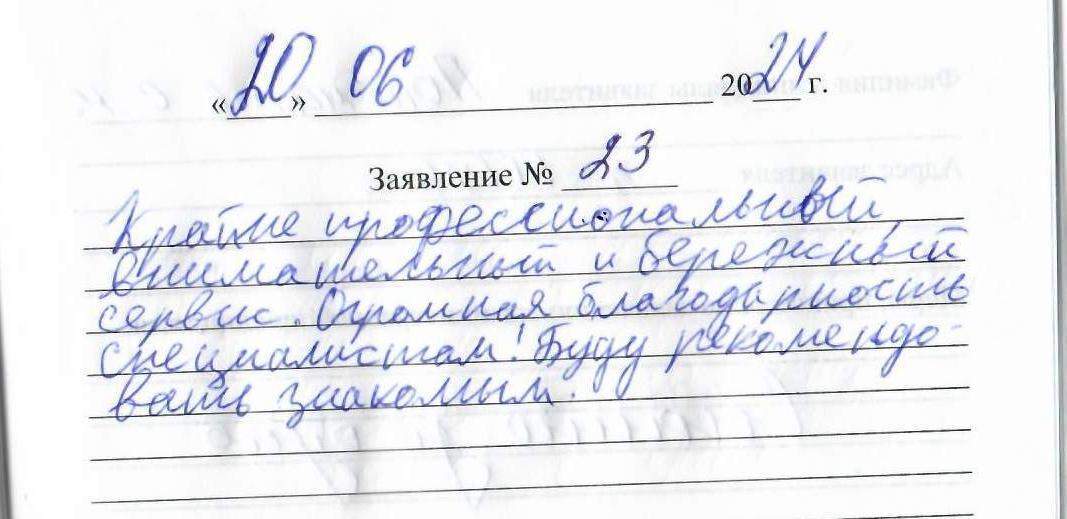 «20» 06 2024 г.
Заявление № 23
Крайне профессиональный,
внимательный и бережный
сервис. Огромная благодарность
специалистам! Буду рекомендо-
вать знакомым.